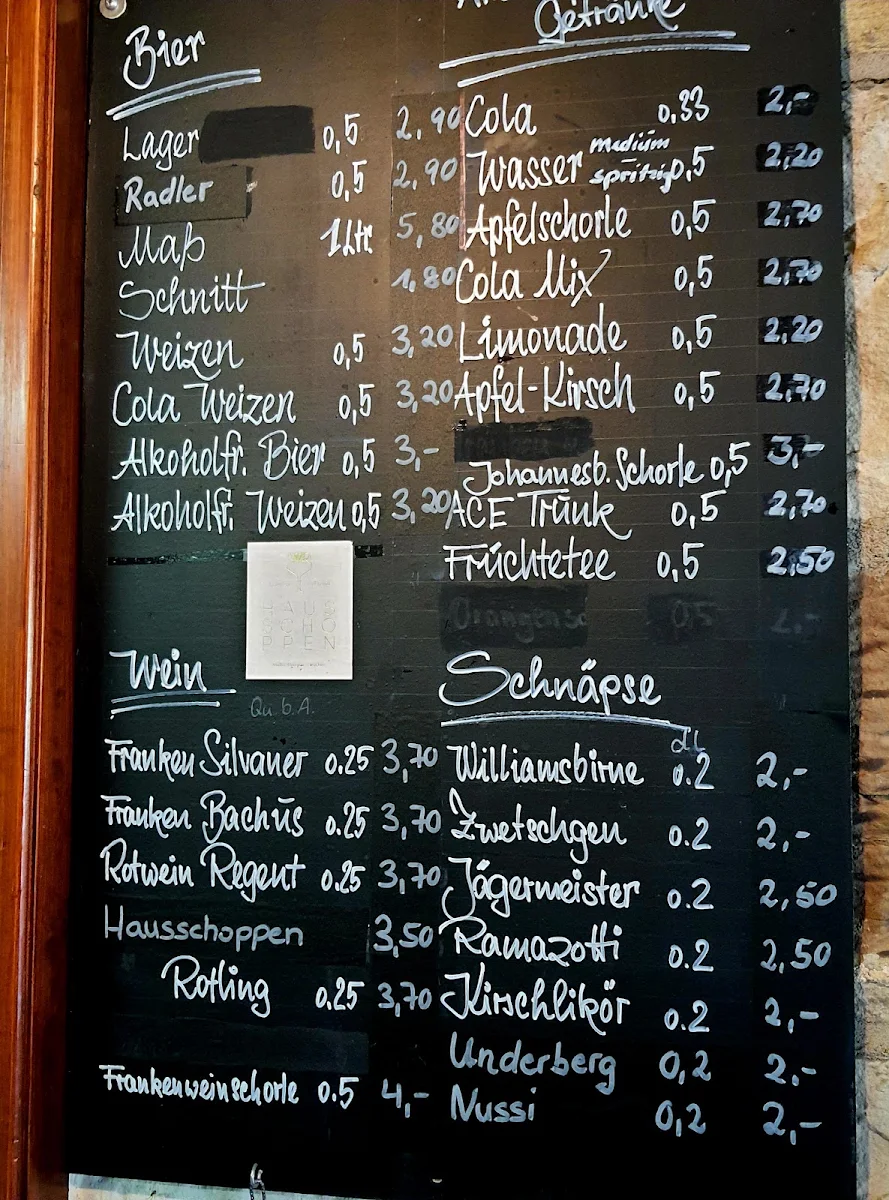 Bier
Lager 0,5 2,90
Radler 0,5 2,90
Maß 1Ltr 5,80
Schnitt 1,80
Weizen 0,5 3,20
Cola Weizen 0,5 3,20
Alkoholfr. Bier 0,5 3,-
Alkoholfr. Weizen 0,5 3,20
HAUS
SCHO
PPEN
Wein
Qu.b.A.
Franken Silvaner 0.25 3,70
Franken Bachus 0.25 3,70
Rotwein Regent 0.25 3,70
Hausschoppen 3,50
Rotling 0.25 3,70
Frankenweinschorle 0.5 4,-
Getränke
Cola 0,33 2,-
Wasser medium spritzig 0,5 2,20
Apfelschorle 0,5 2,70
Cola Mix 0,5 2,70
Limonade 0,5 2,20
Apfel-Kirsch 0,5 2,70
Johannesb. Schorle 0,5 3,-
ACE Trunk 0,5 2,70
Früchtetee 0,5 2,50
0,5
Schnäpse
dl
Williamsbirne 0.2 2,-
Zwetschgen 0.2 2,-
Jägermeister 0.2 2,50
Ramazotti 0.2 2,50
Kirschlikör 0.2 2,-
Underberg 0,2 2,-
Nussi 0,2 2,-